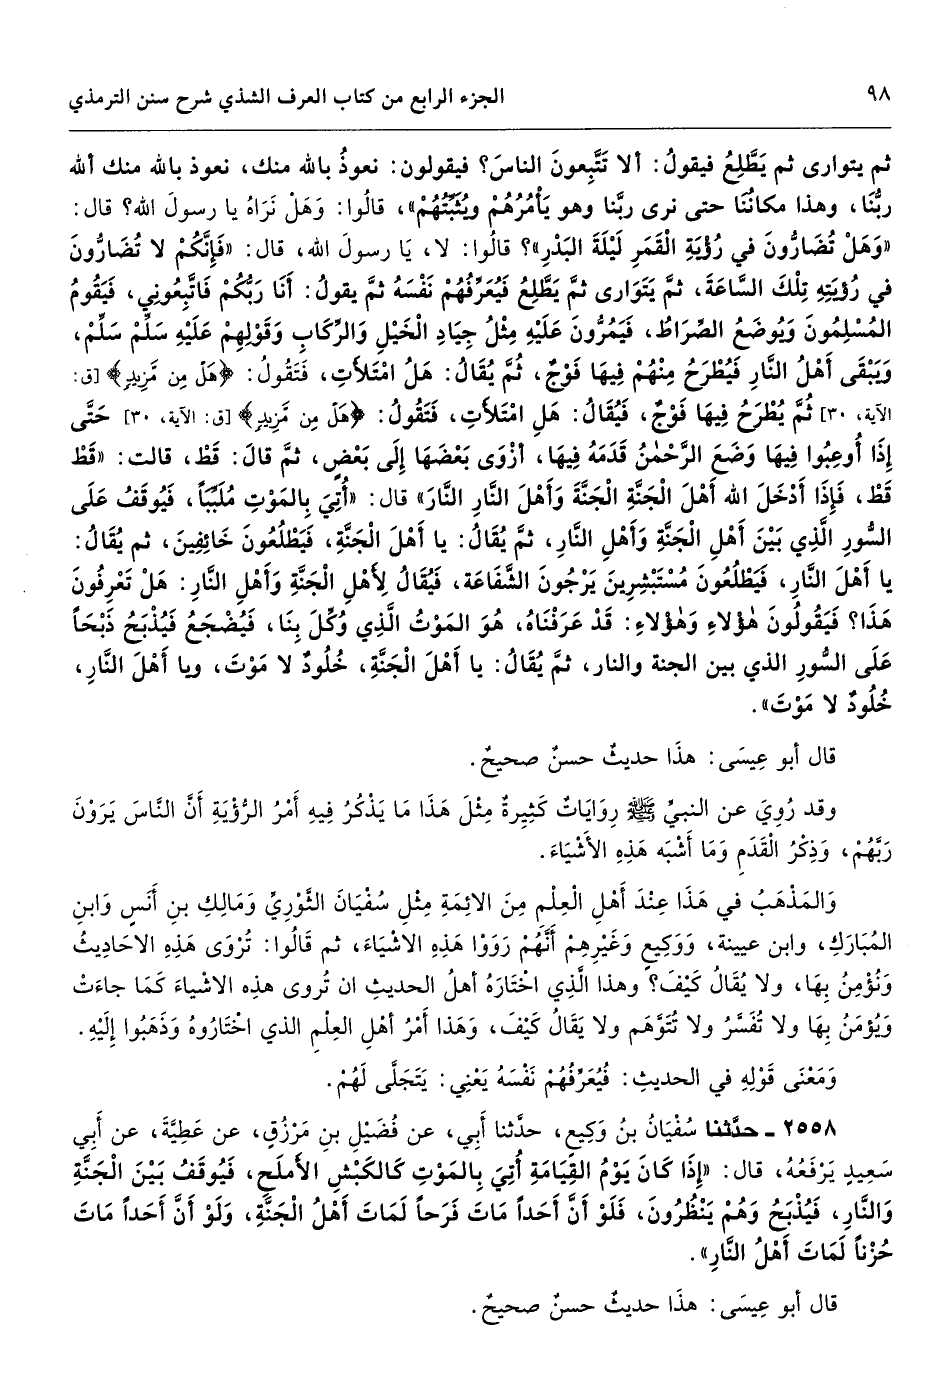 ٩٨ الجزء الرابع من كتاب العرف الشذي شرح سنن الترمذي
ثم يتوارى ثم يَطَّلِعُ فيقولُ: ألا تَتَّبِعونَ الناسَ؟ فيقولون: نعوذُ بالله منك، نعوذ بالله منك ألله
ربُّنَا، وهذا مكانُنَا حتى نرى ربَّنا وهو يَأْمُرُهُمْ ويُثَبِّتُهُمْ»، قالُوا: وَهَلْ نَرَاهُ يا رسولَ الله؟ قال:
«وَهَلْ تُضَارُّونَ في رُؤْيَةِ الْقَمَرِ لَيْلَةَ البَدْرِ»؟ قالُوا: لا، يَا رسولَ الله، قال: «فَإِنَّكُمْ لا تُضَارُّونَ
في رُؤْيَتِهِ تِلْكَ السَّاعَةَ، ثمَّ يَتَوارى ثمَّ يَطَّلِعُ فَيُعَرِّفُهُمْ نَفْسَهُ ثمَّ يقولُ: أنَا رَبُّكُمْ فَاتَّبِعُوني، فَيَقُومُ
المُسْلِمُونَ وَيُوضَعُ الصِّرَاطُ، فَيَمُرُّونَ عَلَيْهِ مِثْلُ جِيَادِ الْخَيْلِ وَالرِّكَابِ وَقَوْلِهِمْ عَلَيْهِ سَلِّمْ سَلِّمْ،
وَيَبْقَى أَهْلُ النَّارِ فَيُطْرَحُ مِنْهُمْ فِيهَا فَوْجٌ، ثُمَّ يُقَالُ: هَلُ امْتَلأْتِ، فَتَقُولُ: ﴿هَلْ مِن مَّزِيدٍ﴾ [ق:
الآية، ٣٠] ثُمَّ يُطْرَحُ فِيهَا فَوْجٌ، فَيُقَالُ: هَلِ امْتَلأْتِ، فَتَقُولُ: ﴿هَلْ مِن مَّزِيدٍ﴾ [ق: الآية، ٣٠] حَتَّى
إِذَا أُوعِبُوا فِيهَا وَضَعَ الرَّحْمٰنُ قَدَمَهُ فِيهَا، أزْوَى بَعْضَهَا إِلَى بَعْضٍ، ثمَّ قالَ: قَطْ، قالت: «قَطْ
قَطْ، فَإِذَا أَدْخَلَ الله أَهْلَ الْجَنَّةِ الْجَنَّةَ وَأَهْلَ النَّارِ النَّارَ» قال: «أُتِيَ بِالمَوْتِ مُلَبَّباً، فَيُوقَفُ عَلَى
السُّورِ الَّذِي بَيْنَ أَهْلِ الْجَنَّةِ وَأَهْلِ النَّارِ، ثمَّ يُقَالُ: يا أَهْلَ الْجَنَّةِ، فَيَطْلُعُونَ خَائِفِينَ، ثم يُقَالُ:
يا أَهْلَ النَّارِ، فَيَطْلُعُونَ مُسْتَبْشِرِينَ يَرْجُونَ الشَّفَاعَةَ، فَيُقَالُ لِأَهْلِ الْجَنَّةِ وَأَهْلِ النَّارِ: هَلْ تَعْرِفُونَ
هَذَا؟ فَيَقُولُونَ هٰؤلاءِ وَهٰؤلاءِ: قَدْ عَرَفْنَاهُ، هُوَ المَوْتُ الَّذِي وُكِّلَ بِنَا، فَيُضْجَعُ فَيُذْبَحُ ذَبْحَاً
عَلَى السُّورِ الذي بين الجنة والنار، ثمَّ يُقَالُ: يا أَهْلَ الْجَنَّةِ، خُلُودٌ لا مَوْتَ، ويا أهْلَ النَّارِ،
خُلُودٌ لا مَوْتَ».
قال أبو عِيسَى: هذَا حديثٌ حسنٌ صحيحٌ.
وقد رُوِيَ عن النبيِّ ﷺ رِوَايَاتٌ كَثِيرةٌ مِثْلَ هَذَا مَا يَذْكُرُ فِيهِ أَمْرُ الرُّؤْيَةِ أَنَّ النَّاسَ يَرَوْنَ
رَبَّهُمْ، وَذِكْرُ الْقَدَمِ وَمَا أَشْبَه هَذِهِ الأَشْيَاءَ.
وَالمَذْهَبُ في هَذَا عِنْدَ أَهْلِ الْعِلْمِ مِنَ الائِمَةِ مِثْلِ سُفْيَانَ الثَّوْرِيِّ وَمَالِكِ بنِ أَنَسٍ وَابنِ
المُبَارَكِ، وابن عيينة، وَوَكِيعٍ وَغَيْرِهِمْ أَنَّهُمْ رَوَوْا هَذِهِ الاشْيَاءَ، ثم قَالُوا: تُرْوَى هَذِهِ الاحَادِيثُ
وَنُؤْمِنُ بِهَا، ولا يُقَالُ كَيْفَ؟ وهذا الَّذِي اخْتَارَهُ أهلُ الحديثِ ان تُروى هذِه الاشياءَ كَمَا جاءَتْ
وَيُؤْمَنُ بِهَا ولا تُفَسَّرُ ولا تُتَوَّهَم ولا يَقَالُ كَيْفَ، وَهَذا أَمْرُ أهْلِ العِلْمِ الذي اخْتَارُوهُ وَذَهَبُوا إِلَيْهِ.
وَمَعْنَى قَوْلِهِ في الحديثِ: فَيُعَرِّفُهُمْ نَفْسَهُ يَعْنِي: يَتَجَلَّى لَهُمْ.
٢٥٥٨ ـ حدَّثنا سُفْيَانُ بنُ وَكِيعٍ، حدَّثنا أَبي، عن فُضَيْلِ بنِ مَرْزُقٍ، عن عَطِيَّةَ، عن أَبي
سَعِيدٍ يَرْفَعُهُ، قال: «إِذَا كَانَ يَوْمُ القِيَامَةِ أُتِيَ بِالمَوْتِ كَالكَبْشِ الأملَحِ، فَيُوقَفُ بَيْنَ الْجَنَّةِ
وَالنَّارِ، فَيُذْبَحُ وَهُمْ يَنْظُرُونَ، فَلَوْ أَنَّ أحَداً مَاتَ فَرَحاً لَمَاتَ أهْلُ الْجَنَّةِ، وَلَوْ أَنَّ أَحَداً مَاتَ
حُزْناً لَمَاتَ أَهْلُ النَّارِ».
قال أبو عِيسَى: هذَا حديثٌ حسنٌ صحيحٌ.